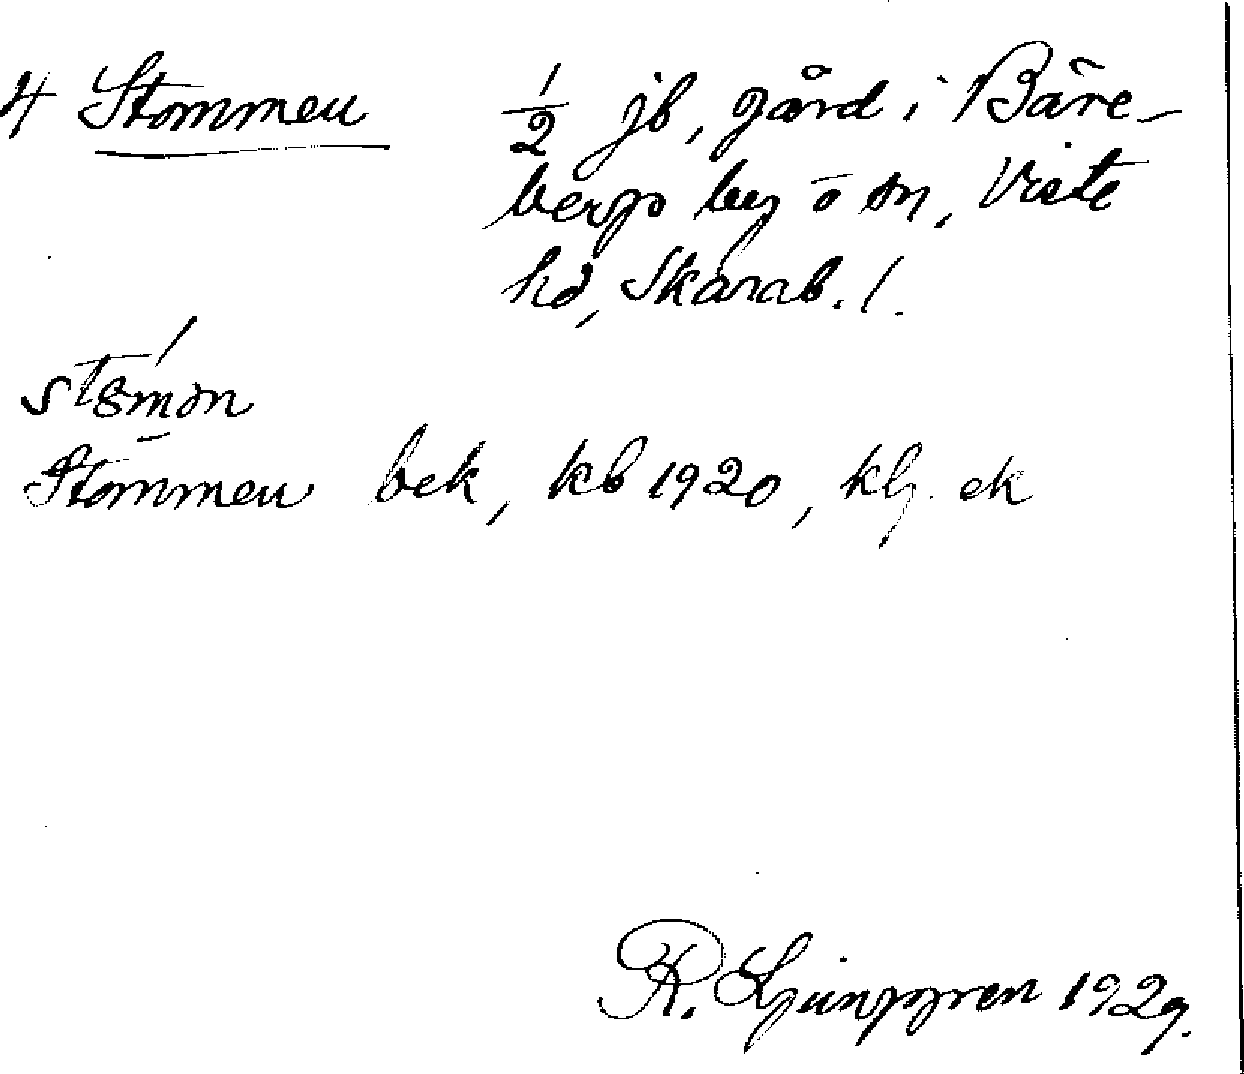 4 Stommen ½ jb, gård i Bäre-
bergs by o sn, Viste
hd, Skarab. l.
stomən
Stommen bek, kb 1920, klj. ek
R. Ljunggren 1929.